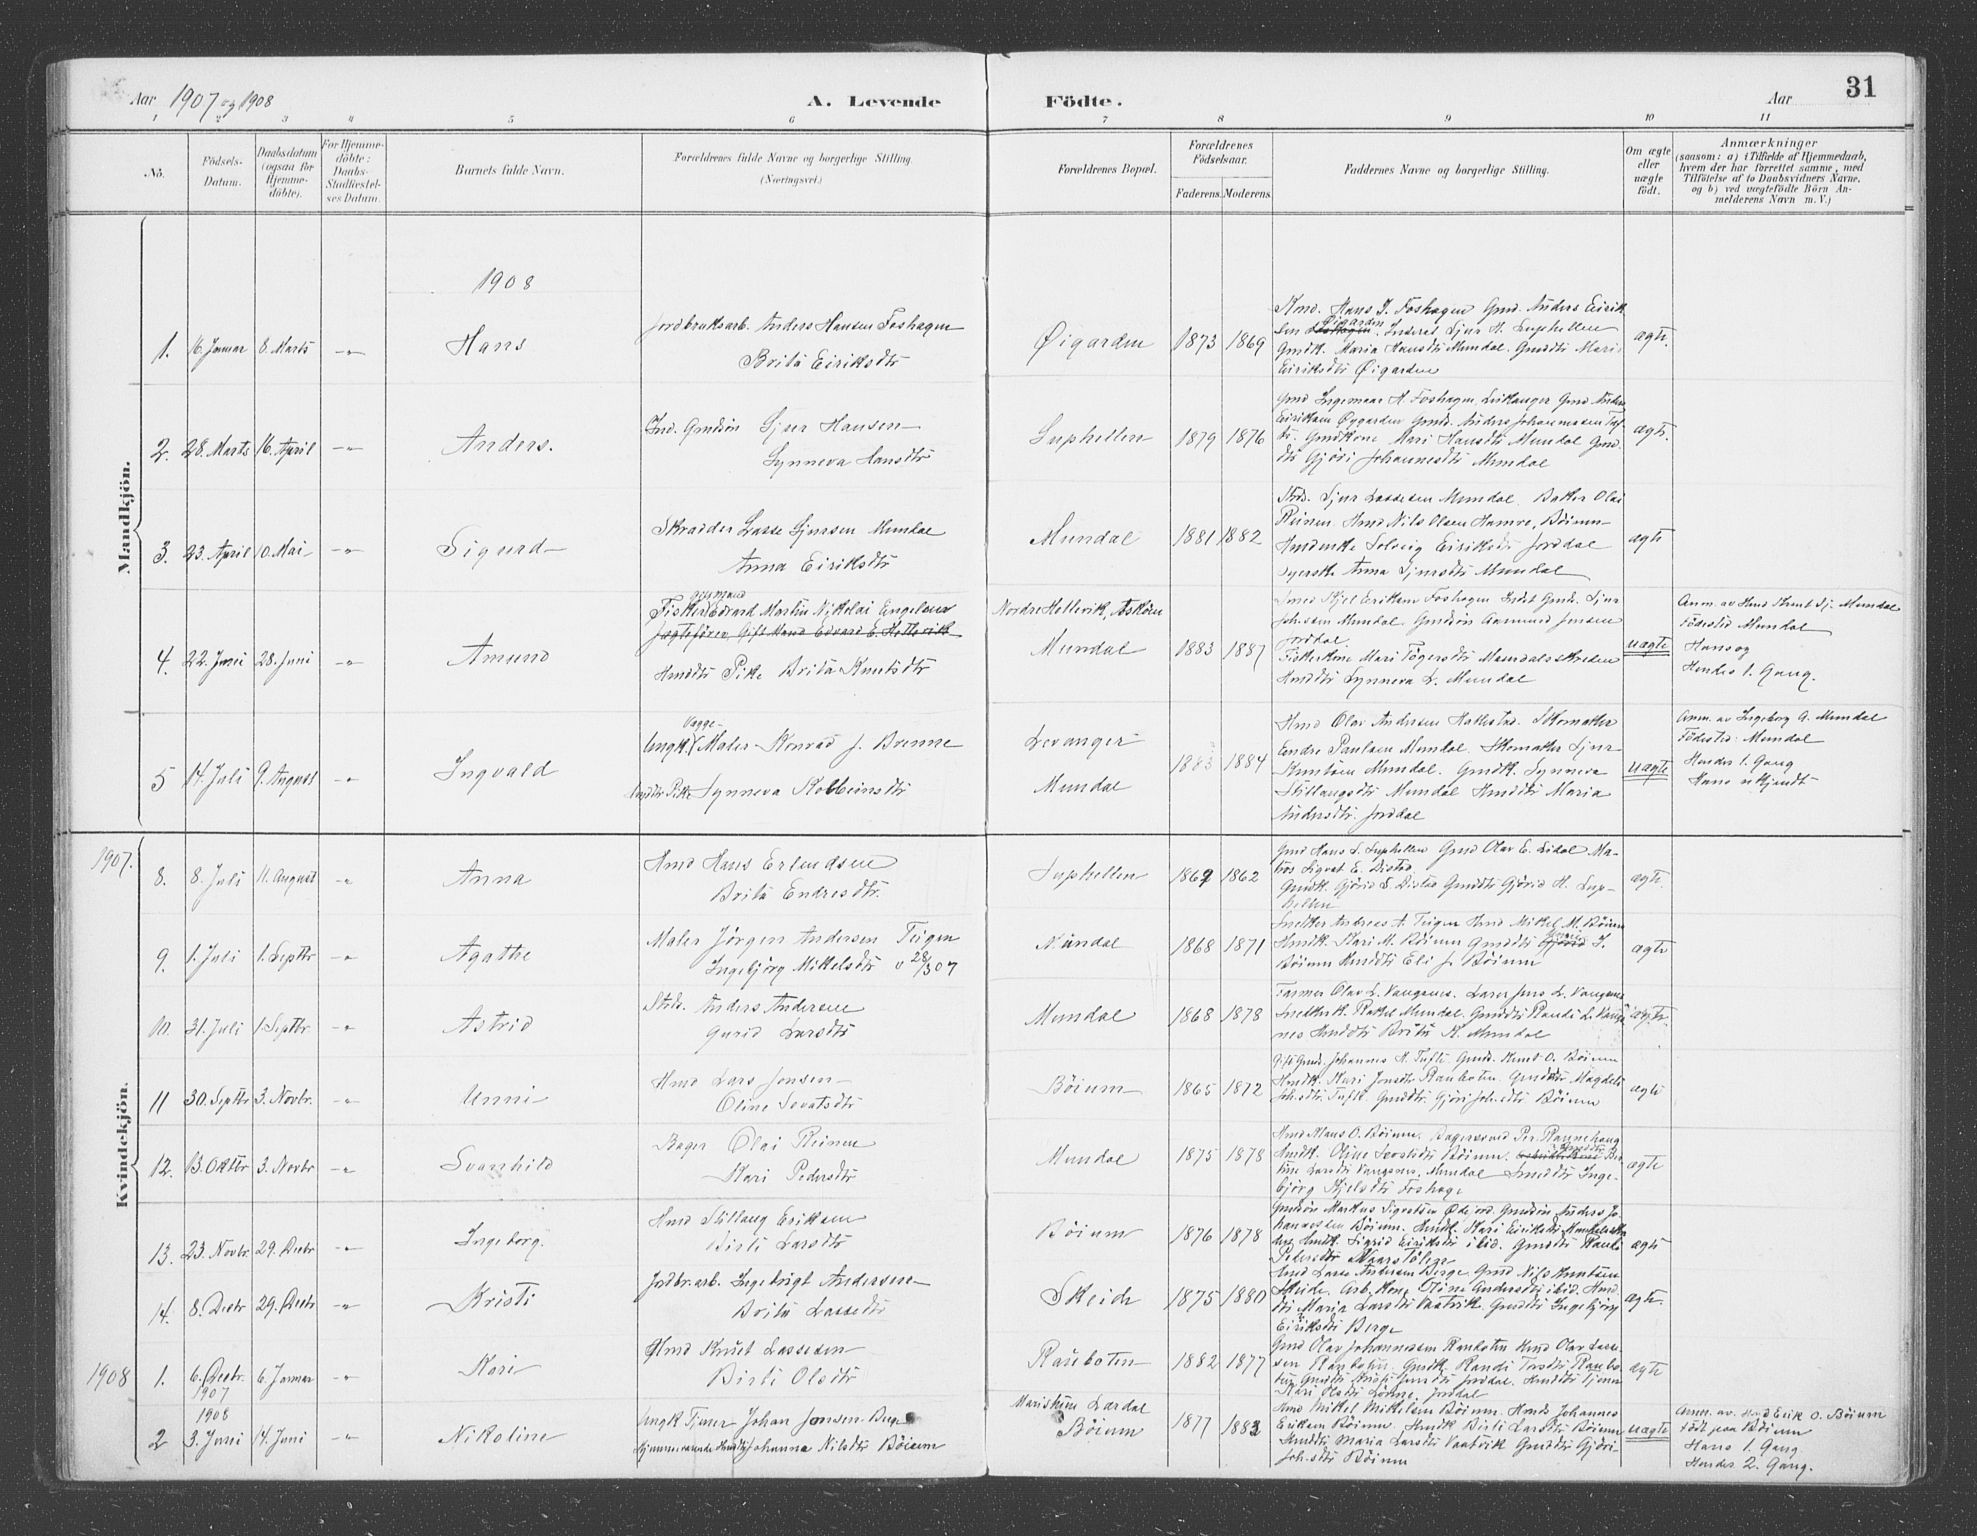 Aar 1907 og 1908
A. Levende Födte.
Aar
31
1 2 3 4 5 6 7 8 9 10 11
No.
Födsels-
Datum.
Daabsdatum
(ogsaa for
Hjemme-
döbte).
For Hjemme-
döbte:
Daabs-
Stadfæstel-
ses Datum.
Barnets fulde Navn.
Forældrenes fulde Navne og borgerlige Stilling.
(Næringsvei.)
Forældrenes Bopæl.
Forældrenes
Födselsaar.
Faderens. Moderens.
Faddernes Navne og borgerlige Stilling.
Om ægte
eller
uægte
födt.
Anmærkninger
(saasom: a) i Tilfælde af Hjemmedaab,
hvem der har forrettet samme, med
Tilföielse af to Daabsvidners Navne,
og b) ved uægtefödte Börn An-
melderens Navn m. V.)
Mandkjön.
1908
1. 16. Januar 8. Marts -"- Hans
Jordbruksarb. Anders Hansen Foshagen
Brita Eiriksdtr
Øigarden 1873 1869
Hans J. Foshagen Gmd. Anders Eirik
sen Øigarden. Sjur H. Suphellen
Gmdk. Maria Hansdtr Mundal. Gmddtr Mari
Eiriksdtr Øigarden
ægte.
2. 28. Marts 16. April -"- Anders.
Ind. Gmdsön Sjur Hansen
Synneva Hansdtr
Suphellen 1879 1876
Gmd Ingemar H. Foshagen, Leikanger Gmd Anders
Eiriksen Øygarden Gmds. Anders Johannessen Tuf
te. Gmdkone Mari Hansdtr Mundal Gmd
dtr Gjöri Johannesdtr Mundal
ægte.
3. 23. April 10. Mai -"- Sigurd
Skrædder Lasse Sjursen Mundal
Anna Eiriksdtr
Mundal 1881 1882
Sjur Lassesen Mundal. Baker Olai
Reinen Hmd Nils Olsen Hamre, Böium
Hmdenke Solveig Eiriksdtr Jordal
Syerske Anna Sjursdtr Mundal
ægte
4. 22. Juni 28. Juni -"- Amund
gift Mand
Fisker Edvard Martin Nikolai Engelsen
Jægtefører, Gift Mand Edvard E. Hellevik
Hmddtr Pike Brita Knutsdtr
Nordre Hellevik, Askön
Mundal 1883 1887
Kjel Eiriksen Foshagen Sjur
Johnsen Mundal. Gmdsön Aamund Jensen
Jordal
Fiskerkone Mari Tögersdtr
Hmddtr Synneva L. Mundal
uægte
Anm. av Hmd Knut Sj. Mundal
Födested Mundal
Hans og
Hendes 1. Gang.
5 14. Juli 9. August -"- Ingvald
Vagge-
Ungk. Maler Konrad J. Brenne
Hmddtr Pike Synneva Kolbeinsdtr
Levanger
Mundal 1883 1884
Hmd Olav Andersen Hatlestad. Skomaker
Endre Paulsen Mundal. Skomaker Sjur
Knutsen Mundal. Gmdk. Synneva
Stillaugsdtr Mundal Hmddtr Maria
Andersdtr. Jordal
uægte
Anm. av Ingeborg A. Mundal
Födested Mundal
Hendes 1. Gang
Hans ubekjendt
1907.
Kvindekjön.
8. 8. Juli 11. August -"- Anna
Hmd Hans Erlendsen
Brita Endresdtr.
Suphellen 1867 1862
Gmd Hans S. Suphellen Gmd Olav E. Lidal Ma-
tros Sigvat E. Distad
Gmdk. Gjörid S. Distad Gmddtr Gjörid H. Sup-
hellen
ægte.
9. 1. Juli 1. Septbr -"- Agathe
Maler Jörgen Andersen Teigen
Ingebjörg Mikkelsdtr v 28/3 07
Mundal 1868 1871
Snedker Andreas A. Teigen Hmd Mikkel M. Böium
Hmdk. Kari M. Böium Gmddtr S.
Böium Hmddtr Eli J. Böium
ægte
10. 31. Juli 1. Septbr. -"- Astrid
Anders Andersen
Gurid Larsdtr
Mundal 1868 1878
Farmer Olav L. Vangsnes. Lærer Jens L. Vangsnes
Snedkerk. Rakel Mundal. Gmddtr Randi L. Vangs
nes Hmddtr Brita K. Mundal
ægte.
11 30. Septbr 3. Novbr. -"- Unni
Hmd Lars Jonsen
Oline Sevatsdtr
Böium 1865 1872
Gift Gmd. Johannes K. Tufte. Gmd. Knut O. Böium
Hmdk. Kari Jonsdtr Rauboten. Gmddtr Magdeli
Johsdtr. Tufte. Gmddtr. Gjöri Johsdtr Böium
ægte
12. 13. Oktbr 3. Novbr -"- Svanhild
Bager Olai Reinen
Kari Pedersdtr
Mundal 1875 1878
Hmd Klaus O. Böium. Bagersvend Per Rannehaug
Hmdk. Oline Sevatsdtr Böium.
Larsdtr Vangsnes, Mundal Inge-
björg Kjelsdtr Foshage
ægte
13. 23. Novbr 29. Decbr -"- Ingeborg.
Hmd Stillaug Eriksen
Birti Larsdtr
Böium 1876 1878
Gmdsön Markus Sigvatsen Gmdsön Anders Jo-
hannessen Böium. Hmdk. Kari Eiriksdtr
Hmdk. Sigrid Eiriksdtr ibid. Gmddtr Randi
Pedersdtr
ægte
14. 8. Decbr 29. Decbr -"- Kristi
Jordbr.arb. Ingebrigt Andersen
Brita Lassedtr
Skeide 1875 1880
Hmd Lasse Andersen Berge, Gmd Nils Knutsen
Skeide. Arb. Kone Oline Andersdtr ibid. Hmd
dtr Maria Larsdtr Vaatvik. Gmddtr Ingebjörg
Eiriksdtr Berge
ægte.
1908
1. 6. Decbr. 6. Januar -"- Kari
1907
Hmd Knut Lassesen
Birti Olsdtr
Rauboten 1882 1877
Gmd Olav Johannessen Rauboten Hmd Olav Lasse-
sen Rauboten. Gmdk. Randi Torsdtr. Raubo-
ten Gmddtr Jensdtr Jordal. Hmddtr
Kari Olsdtr Jordal
ægte
1908
2 3. Juni 14. Juni -"- Nikoline
Ungk Tjener Johan Jonsen Berge
Hjemmeværende Hmddtr Johanna Nilsdtr Böium
Maristuen Lærdal
Böium 1877 1883
Hmd Mikkel Mikkelsen Böium. Hmd Johannes
Eriksen Böium. Hmdk Birti Larsdtr Böium
Hmddtr Maria Larsdtr Vaatvik Gmddtr Gjöri
Johsdtr Böium
uægte
Anm. av Hmd Erik O. Böium
Födt paa Böium
Hans 1. Gang
Hendes 2. Gang.